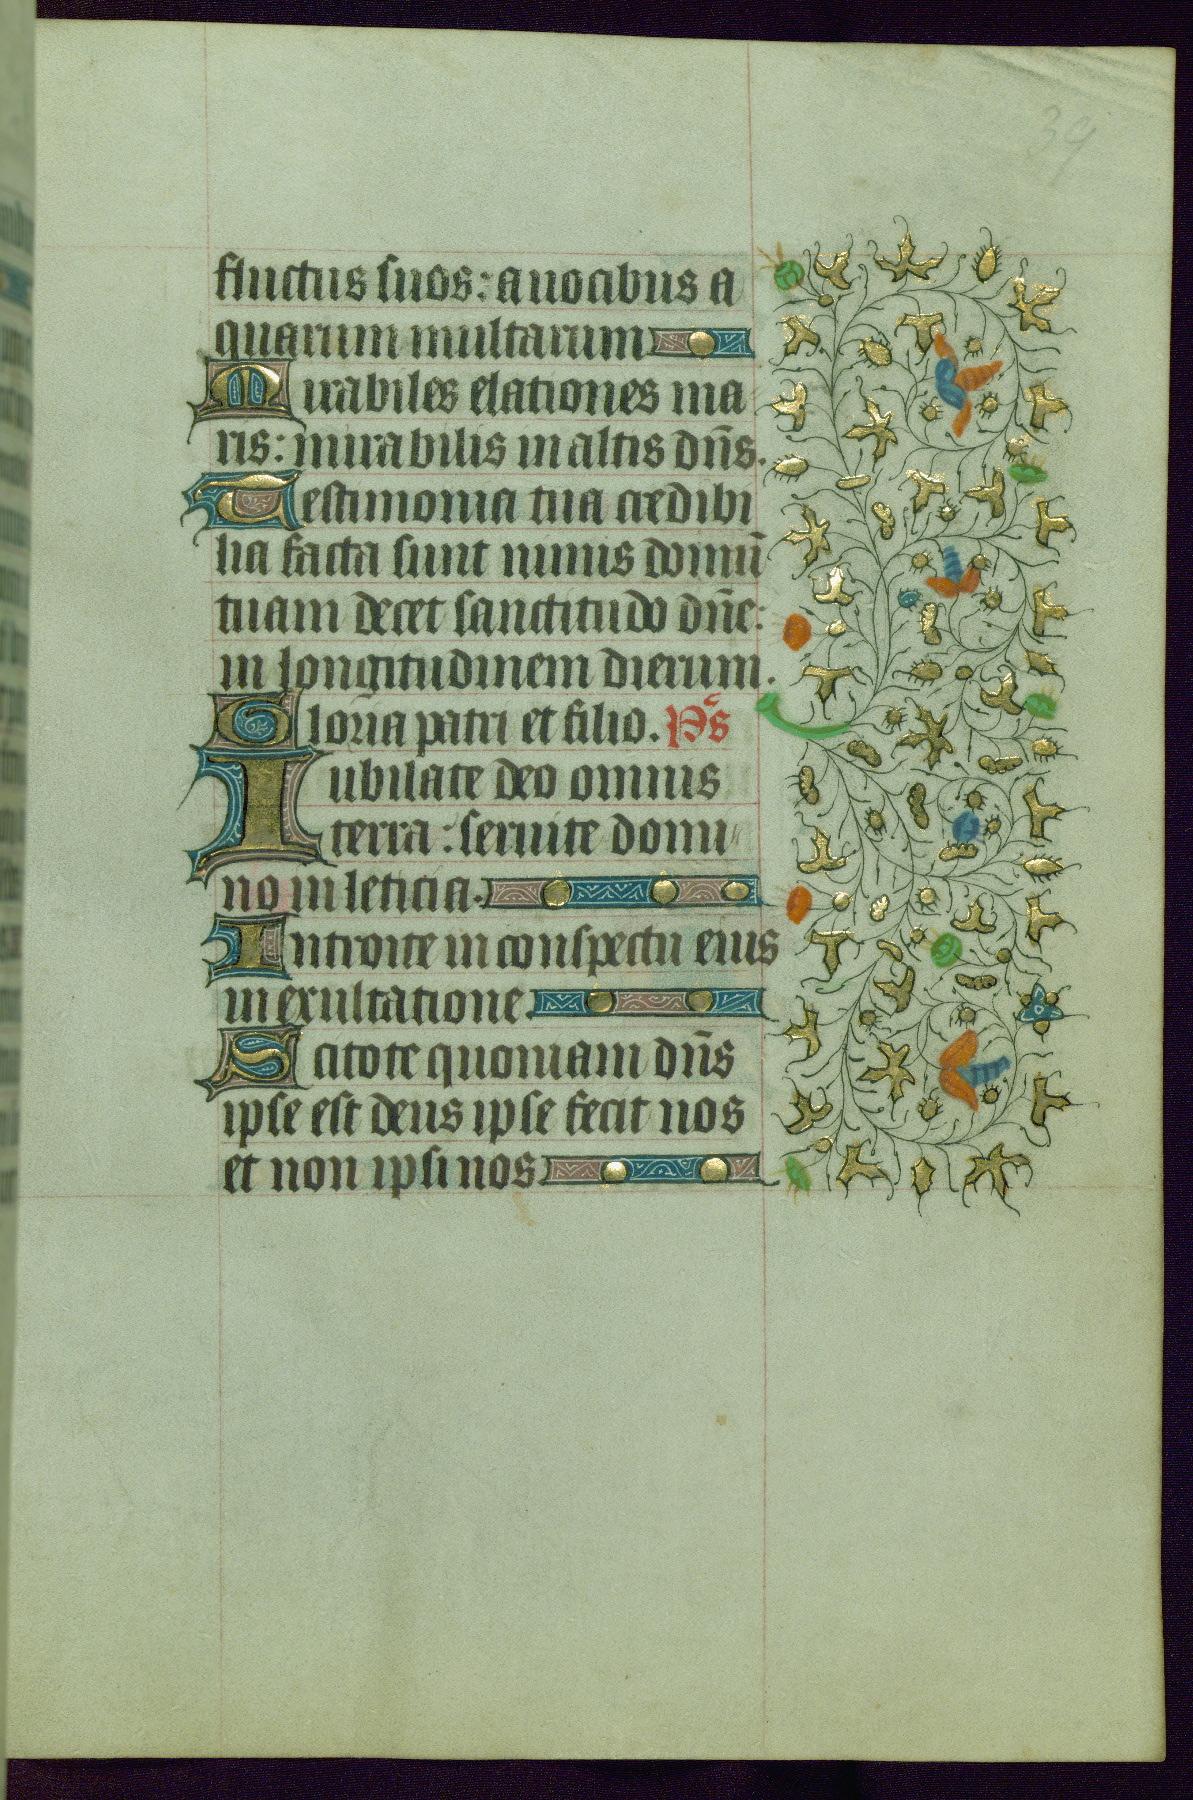 39
fluctus suos: a vocibus a
quarum multarum
Mirabiles elationes ma
ris: mirabilis in altis dn̄s.
Testimonia tua credibi
lia facta sunt nimis domū
tuam decet sanctitudo dn̄e:
in longitudinem dierum.
Gloria patri et filio. Ps̄
Iubilate deo omnis
terra: seruite domi
no in leticia.
Introite in conspectu eius
in exultatione.
Scitote quoniam dn̄s
ipse est deus ipse fecit nos
et non ipsi nos